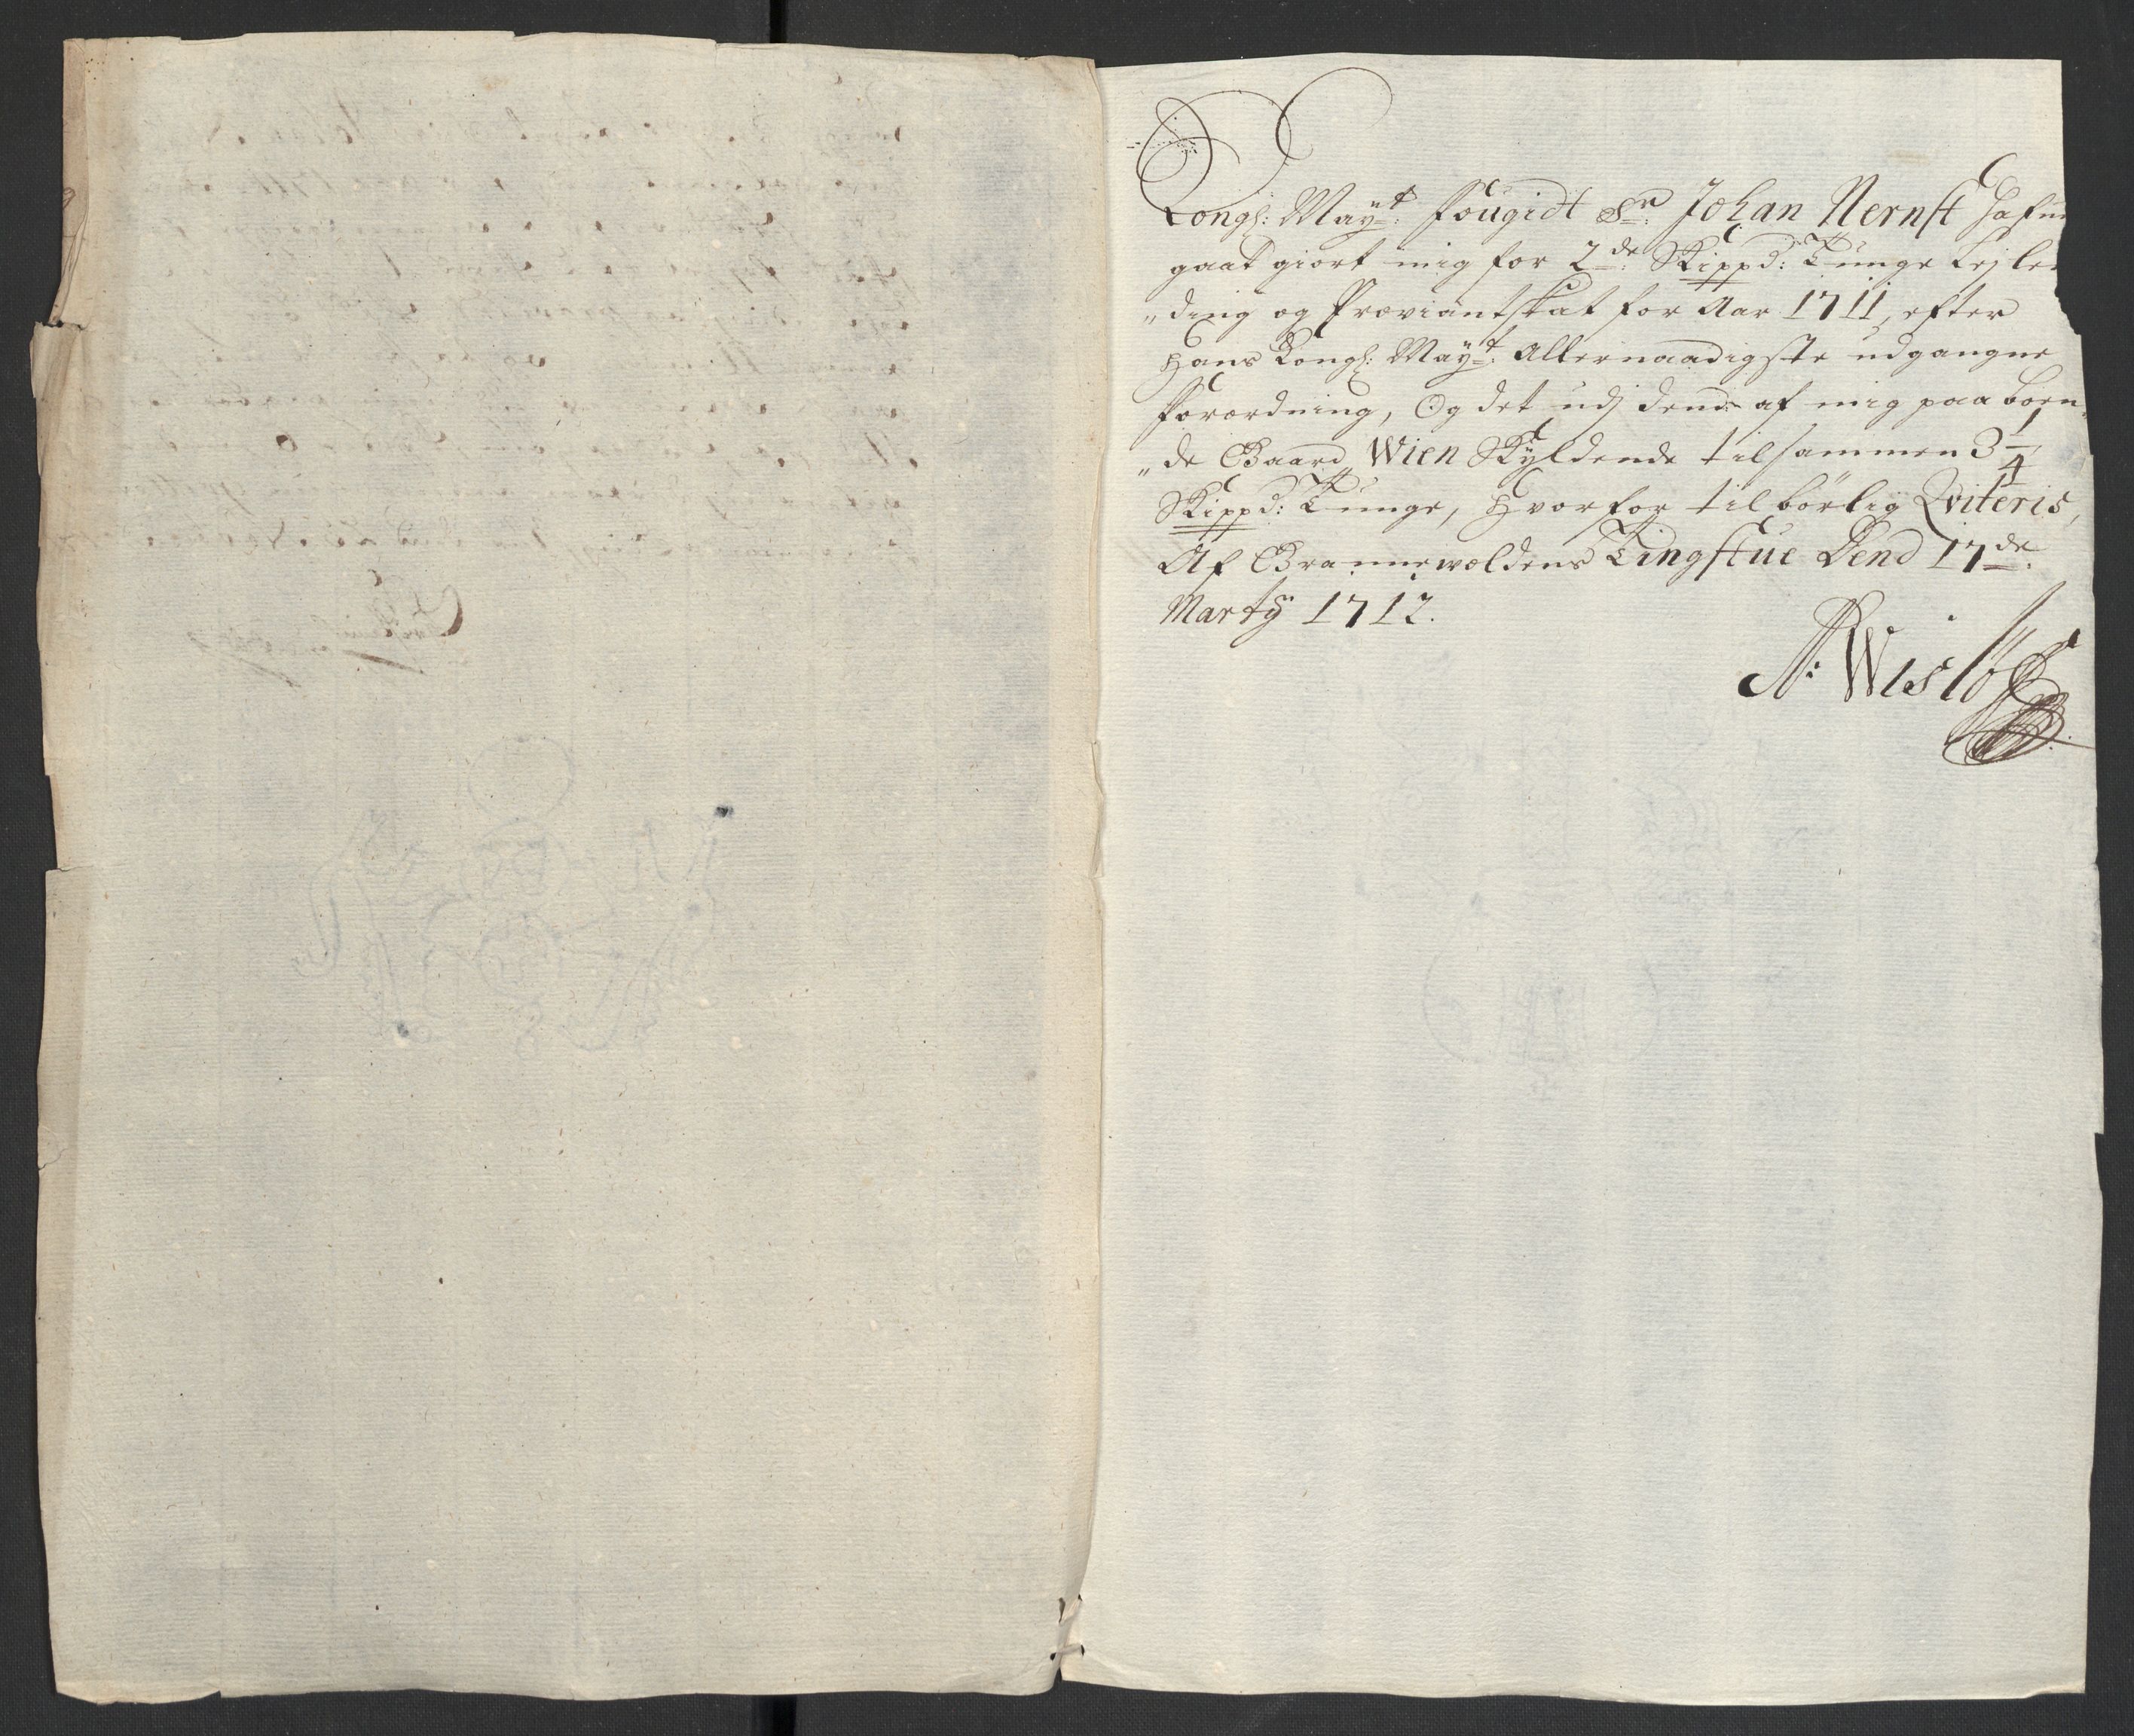 Kongl: Mayt: Fougidt Sr: Johan Nernst hafu
gaat giort mig for 2de: Skippd: Tunge Lejle
„ding og Proviantskat for Aar 1711, efter
Hans Kongl: Mayt: Allernaadigste udgangne
Forordning, Og det udj dend af mig paa boen„
„de Gaard Wien Skyldende tilsammen 3 1/4
Skippd: Tunge, Hvorfor tilbörlig Qviteris,
Af Brannwoldens Tingstue Dend 17de:
Martij 1712.
A: Wislöf